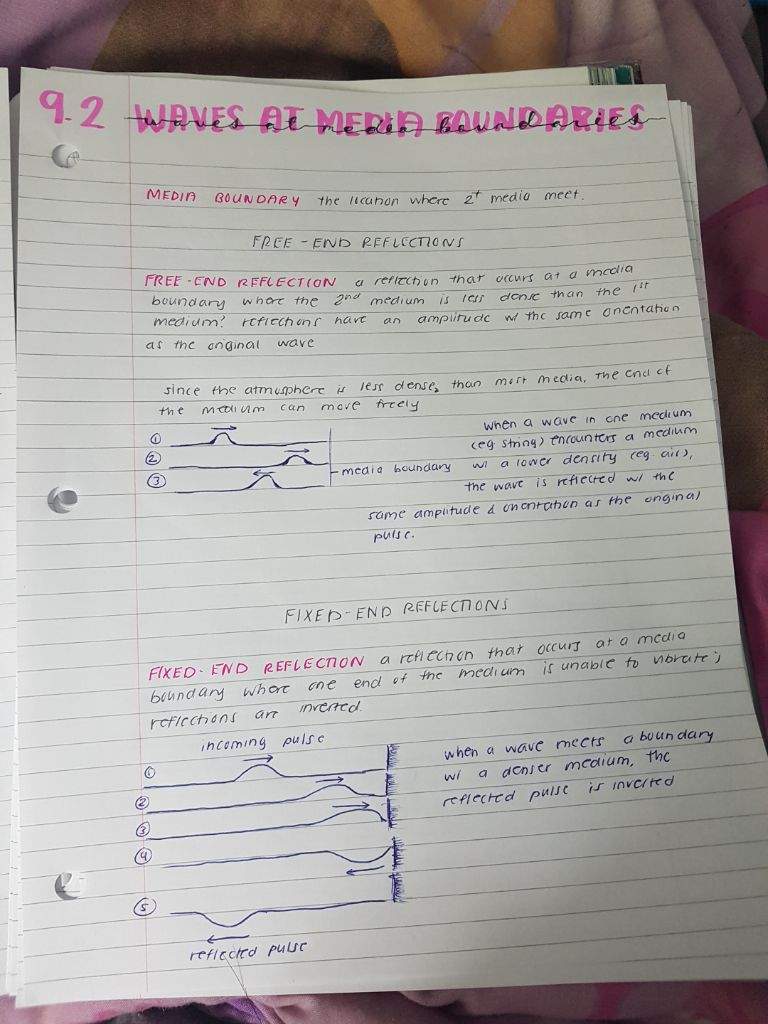 9.2 WAVES AT MEDIA BOUNDARIES
waves at media boundaries
MEDIA BOUNDARY the location where 2+ media meet.
FREE-END REFLECTIONS
FREE-END REFLECTION a reflection that occurs at a media
boundary where the 2nd medium is less dense than the 1st
medium; reflections have an amplitude w/ the same orientation
as the original wave
since the atmosphere is less dense, than most media, the end of
the medium can move freely
①
②
③
media boundary
when a wave in one medium
(eg string) encounters a medium
w/ a lower density (eg. air),
the wave is reflected w/ the
same amplitude & orientation as the original
pulse.
FIXED-END REFLECTIONS
FIXED-END REFLECTION a reflection that occurs at a media
boundary where one end of the medium is unable to vibrate;
reflections are inverted.
incoming pulse
①
②
③
④
⑤
reflected pulse
when a wave meets a boundary
w/ a denser medium, the
reflected pulse is inverted